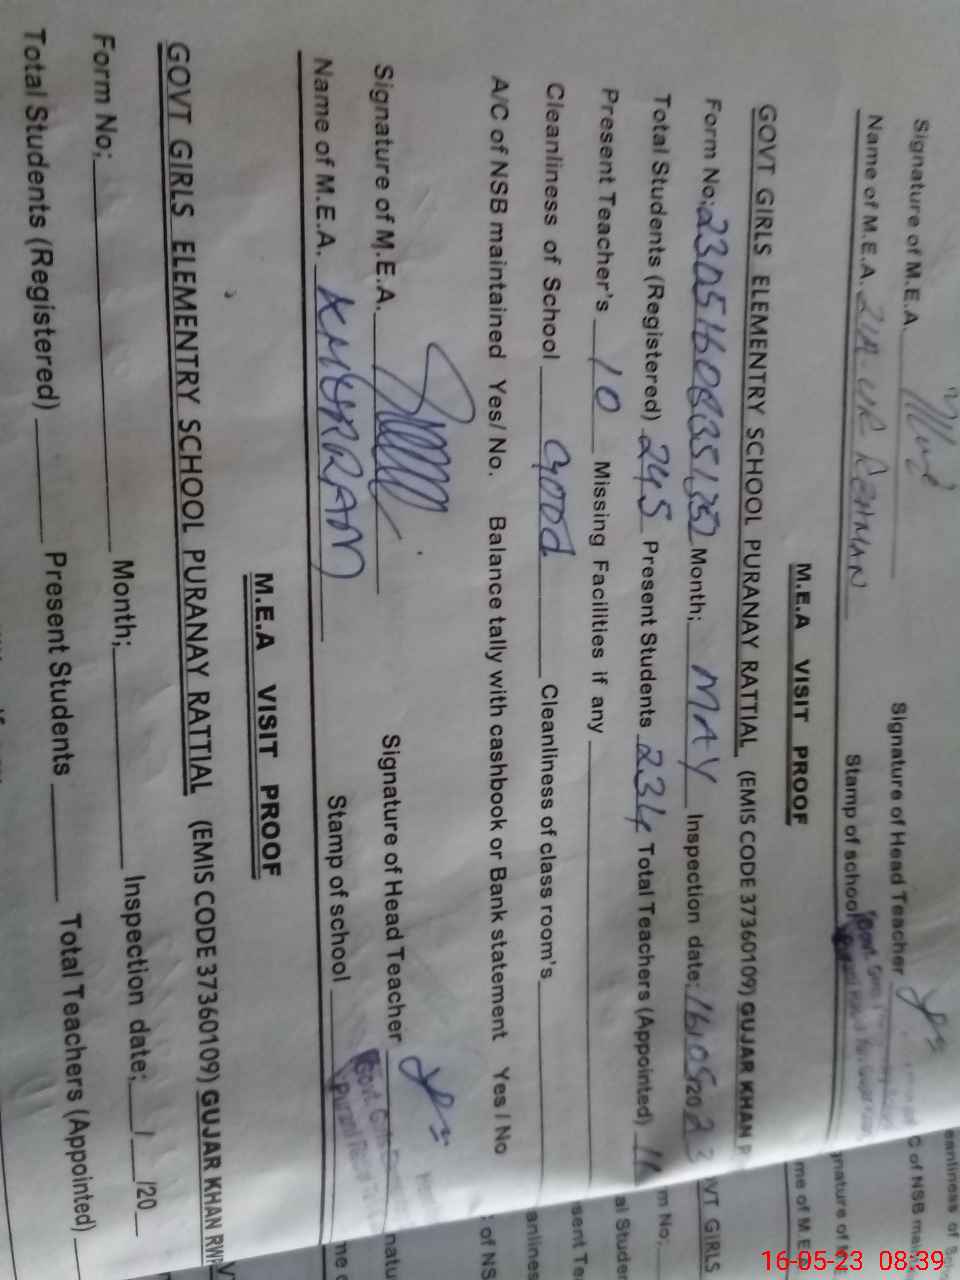 Signature of M.E.A. Signature of Head Teacher
Name of M.E.A. ZIA UR REHMAN Stamp of school
M.E.A VISIT PROOF
GOVT GIRLS ELEMENTRY SCHOOL PURANAY RATTIAL (EMIS CODE 37360109) GUJAR KHAN
Form No; Month; MAY Inspection date; 16/05/2023
Total Students (Registered) 245 Present Students 234 Total Teachers (Appointed) 11
Present Teacher's 10 Missing Facilities if any
Cleanliness of School Good Cleanliness of class room's
A/C of NSB maintained Yes/ No. Balance tally with cashbook or Bank statement Yes / No
Signature of M.E.A. Signature of Head Teacher
Name of M.E.A. KHURRAM Stamp of school
M.E.A VISIT PROOF
GOVT GIRLS ELEMENTRY SCHOOL PURANAY RATTIAL (EMIS CODE 37360109) GUJAR KHAN RWP
Form No; Month; Inspection date; / /20
Total Students (Registered) Present Students Total Teachers (Appointed)
16-05-23 08:39